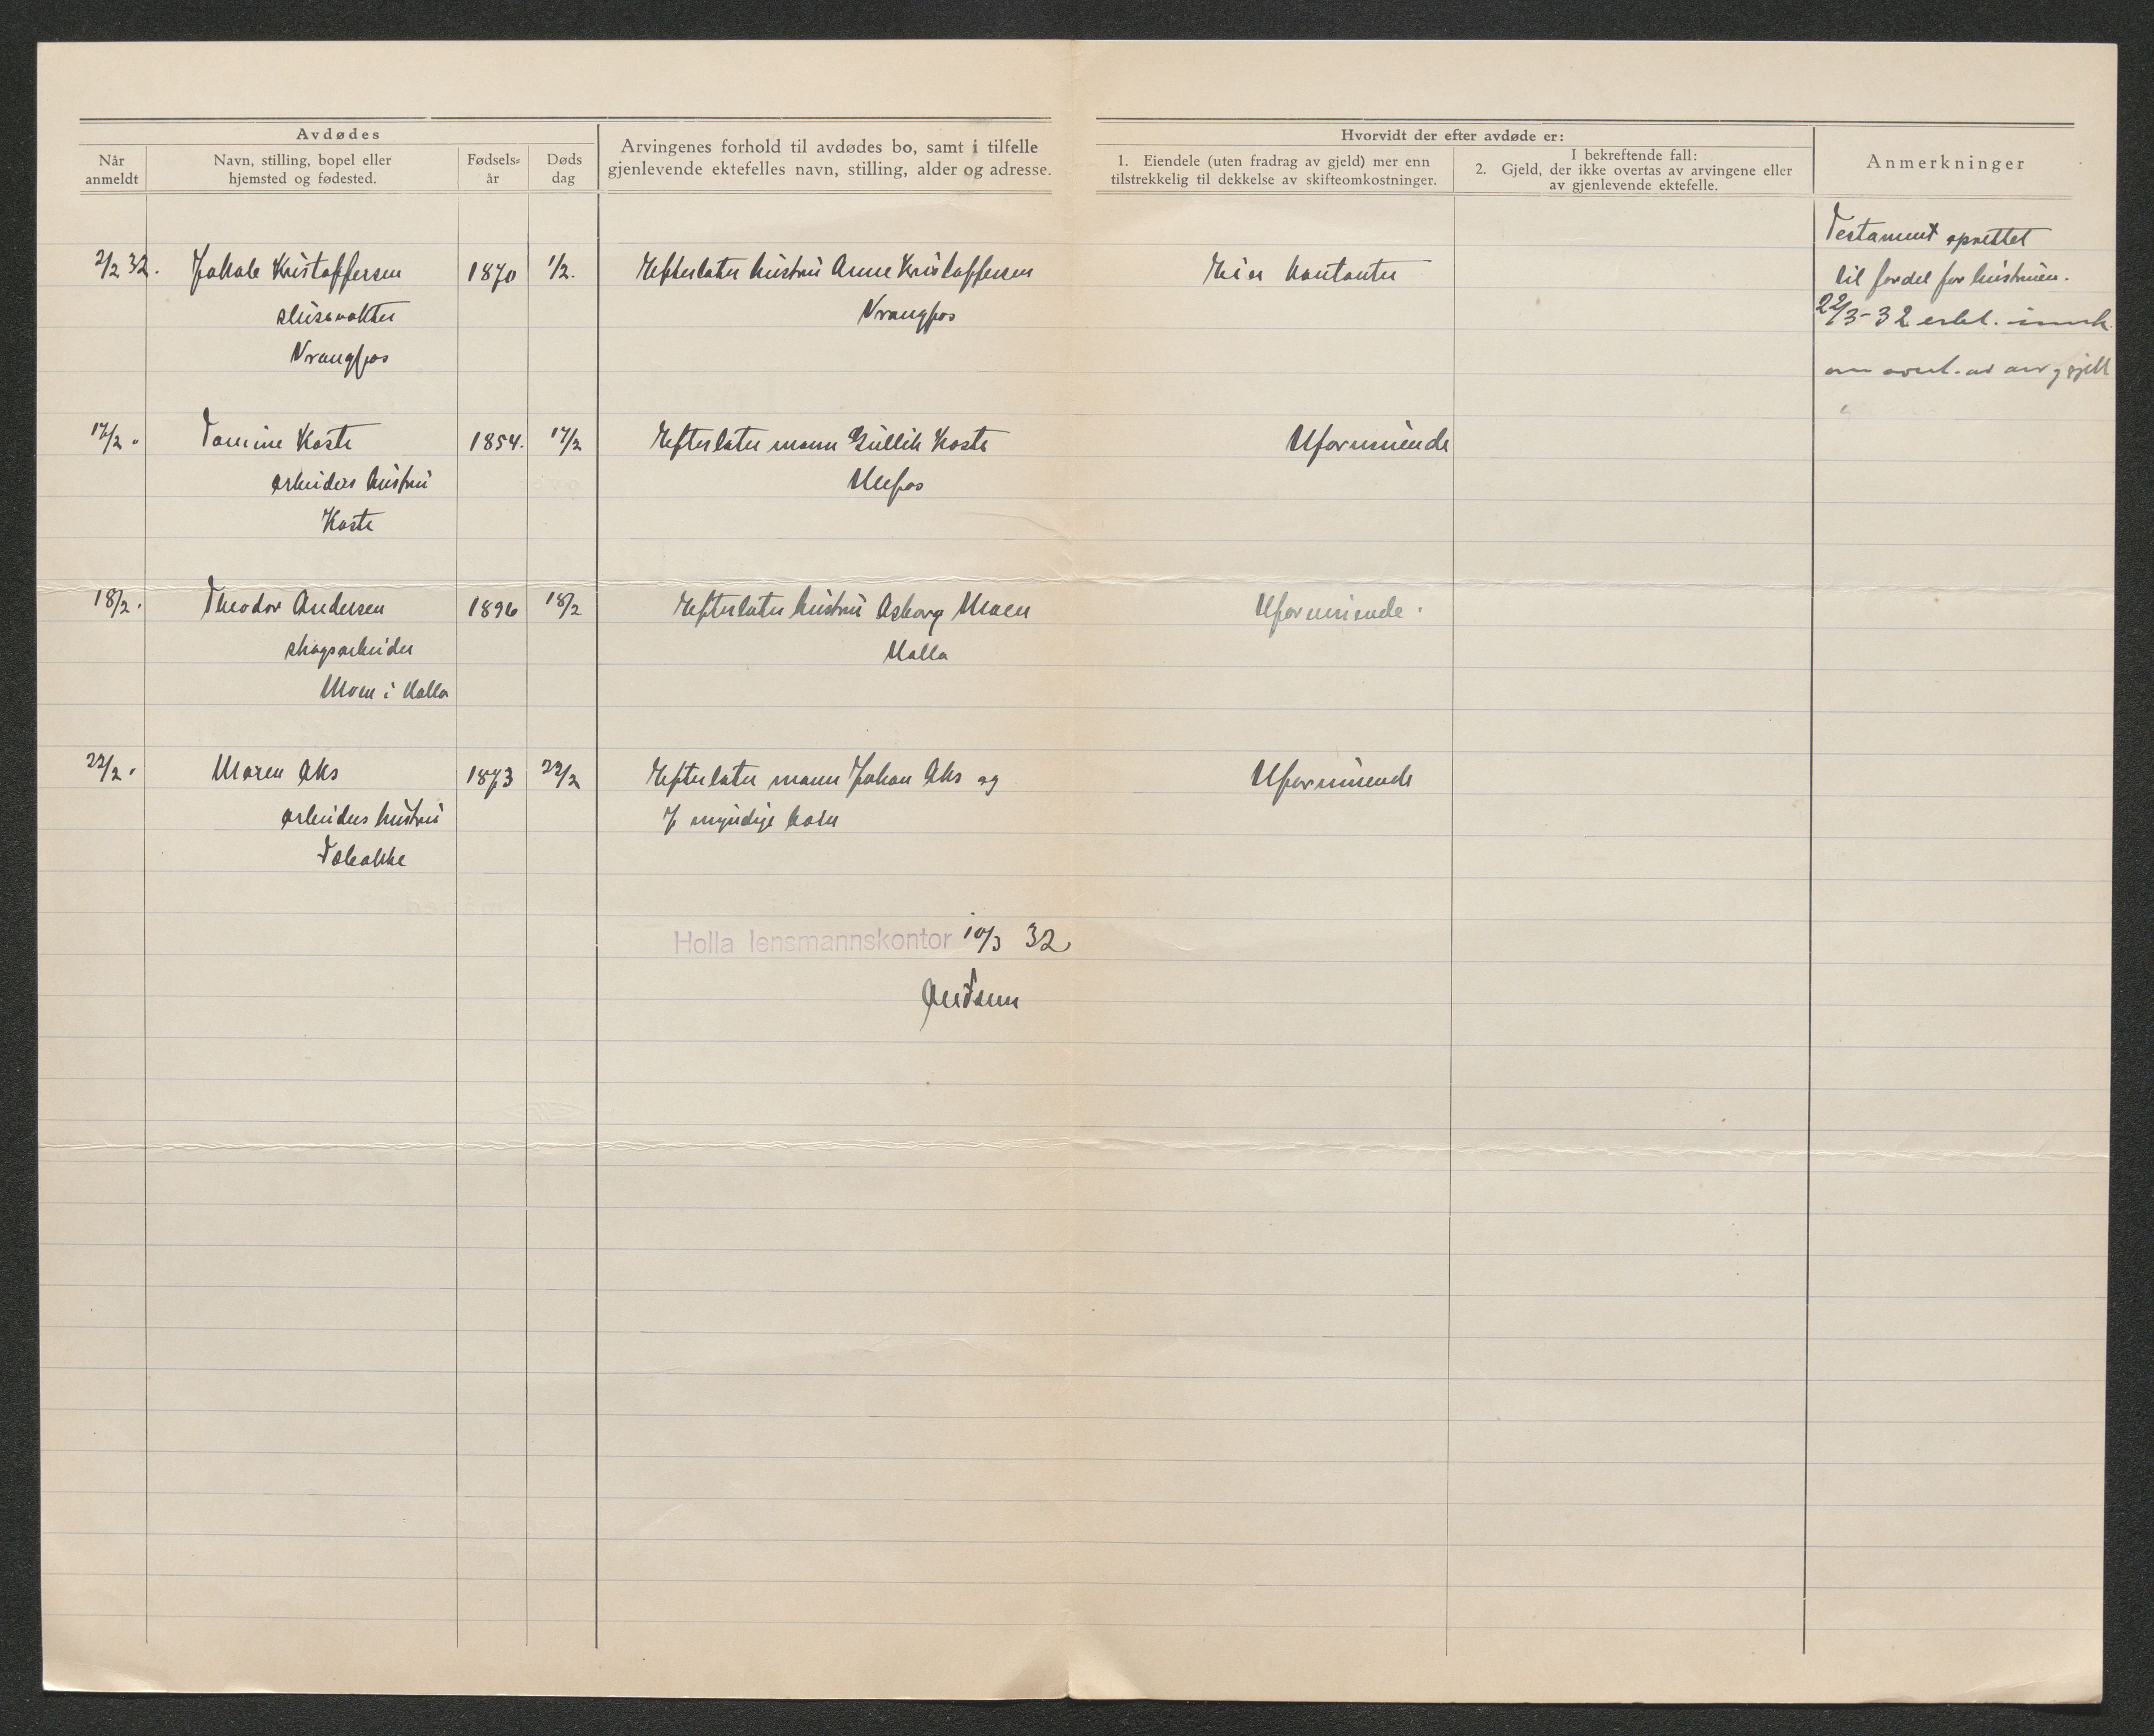 Avdødes
Når anmeldt
Navn, stilling, bopel eller hjemsted og fødested.
Fødsels= år
Døds dag
Arvingenes forhold til avdødes bo, samt i tilfelle
gjenlevende ektefelles navn, stilling, alder og adresse.
Hvorvidt der efter avdøde er:
1. Eiendele (uten fradrag av gjeld) mer enn
tilstrekkelig til dekkelse av skifteomkostninger.
I bekreftende fall:
2. Gjeld, der ikke overtas av arvingene eller
av gjenlevende ektefelle.
Anmerkninger
2/2 32. Jakob Kristoffersen 1870 1/2. Efterlater hustru Anne Kristoffersen Eier kontanter
slusevokter Vrangfos
Vrangfos
Testament oprettet
til fordel for hustruen.
22/3-32 erkl. innk.
om overt. av arv g gjell
17/2 " Tomine Kaste 1854. 17/2 Efterlater mann Gullik Kaste Uformuende
arbeiders hustru Ulefos
Kaste
18/2. Theodor Andersen 1896 18/2 Efterlater hustru Asborg Moen Uformuende.
skogsarbeider Holla
Moen i Holla
22/2. Maren Aks 1873 22/2 Efterlater mann Johan Aks og Uformuende
arbeiders hustru 7 myndige barn
Holla lensmannskontor 10/3 32